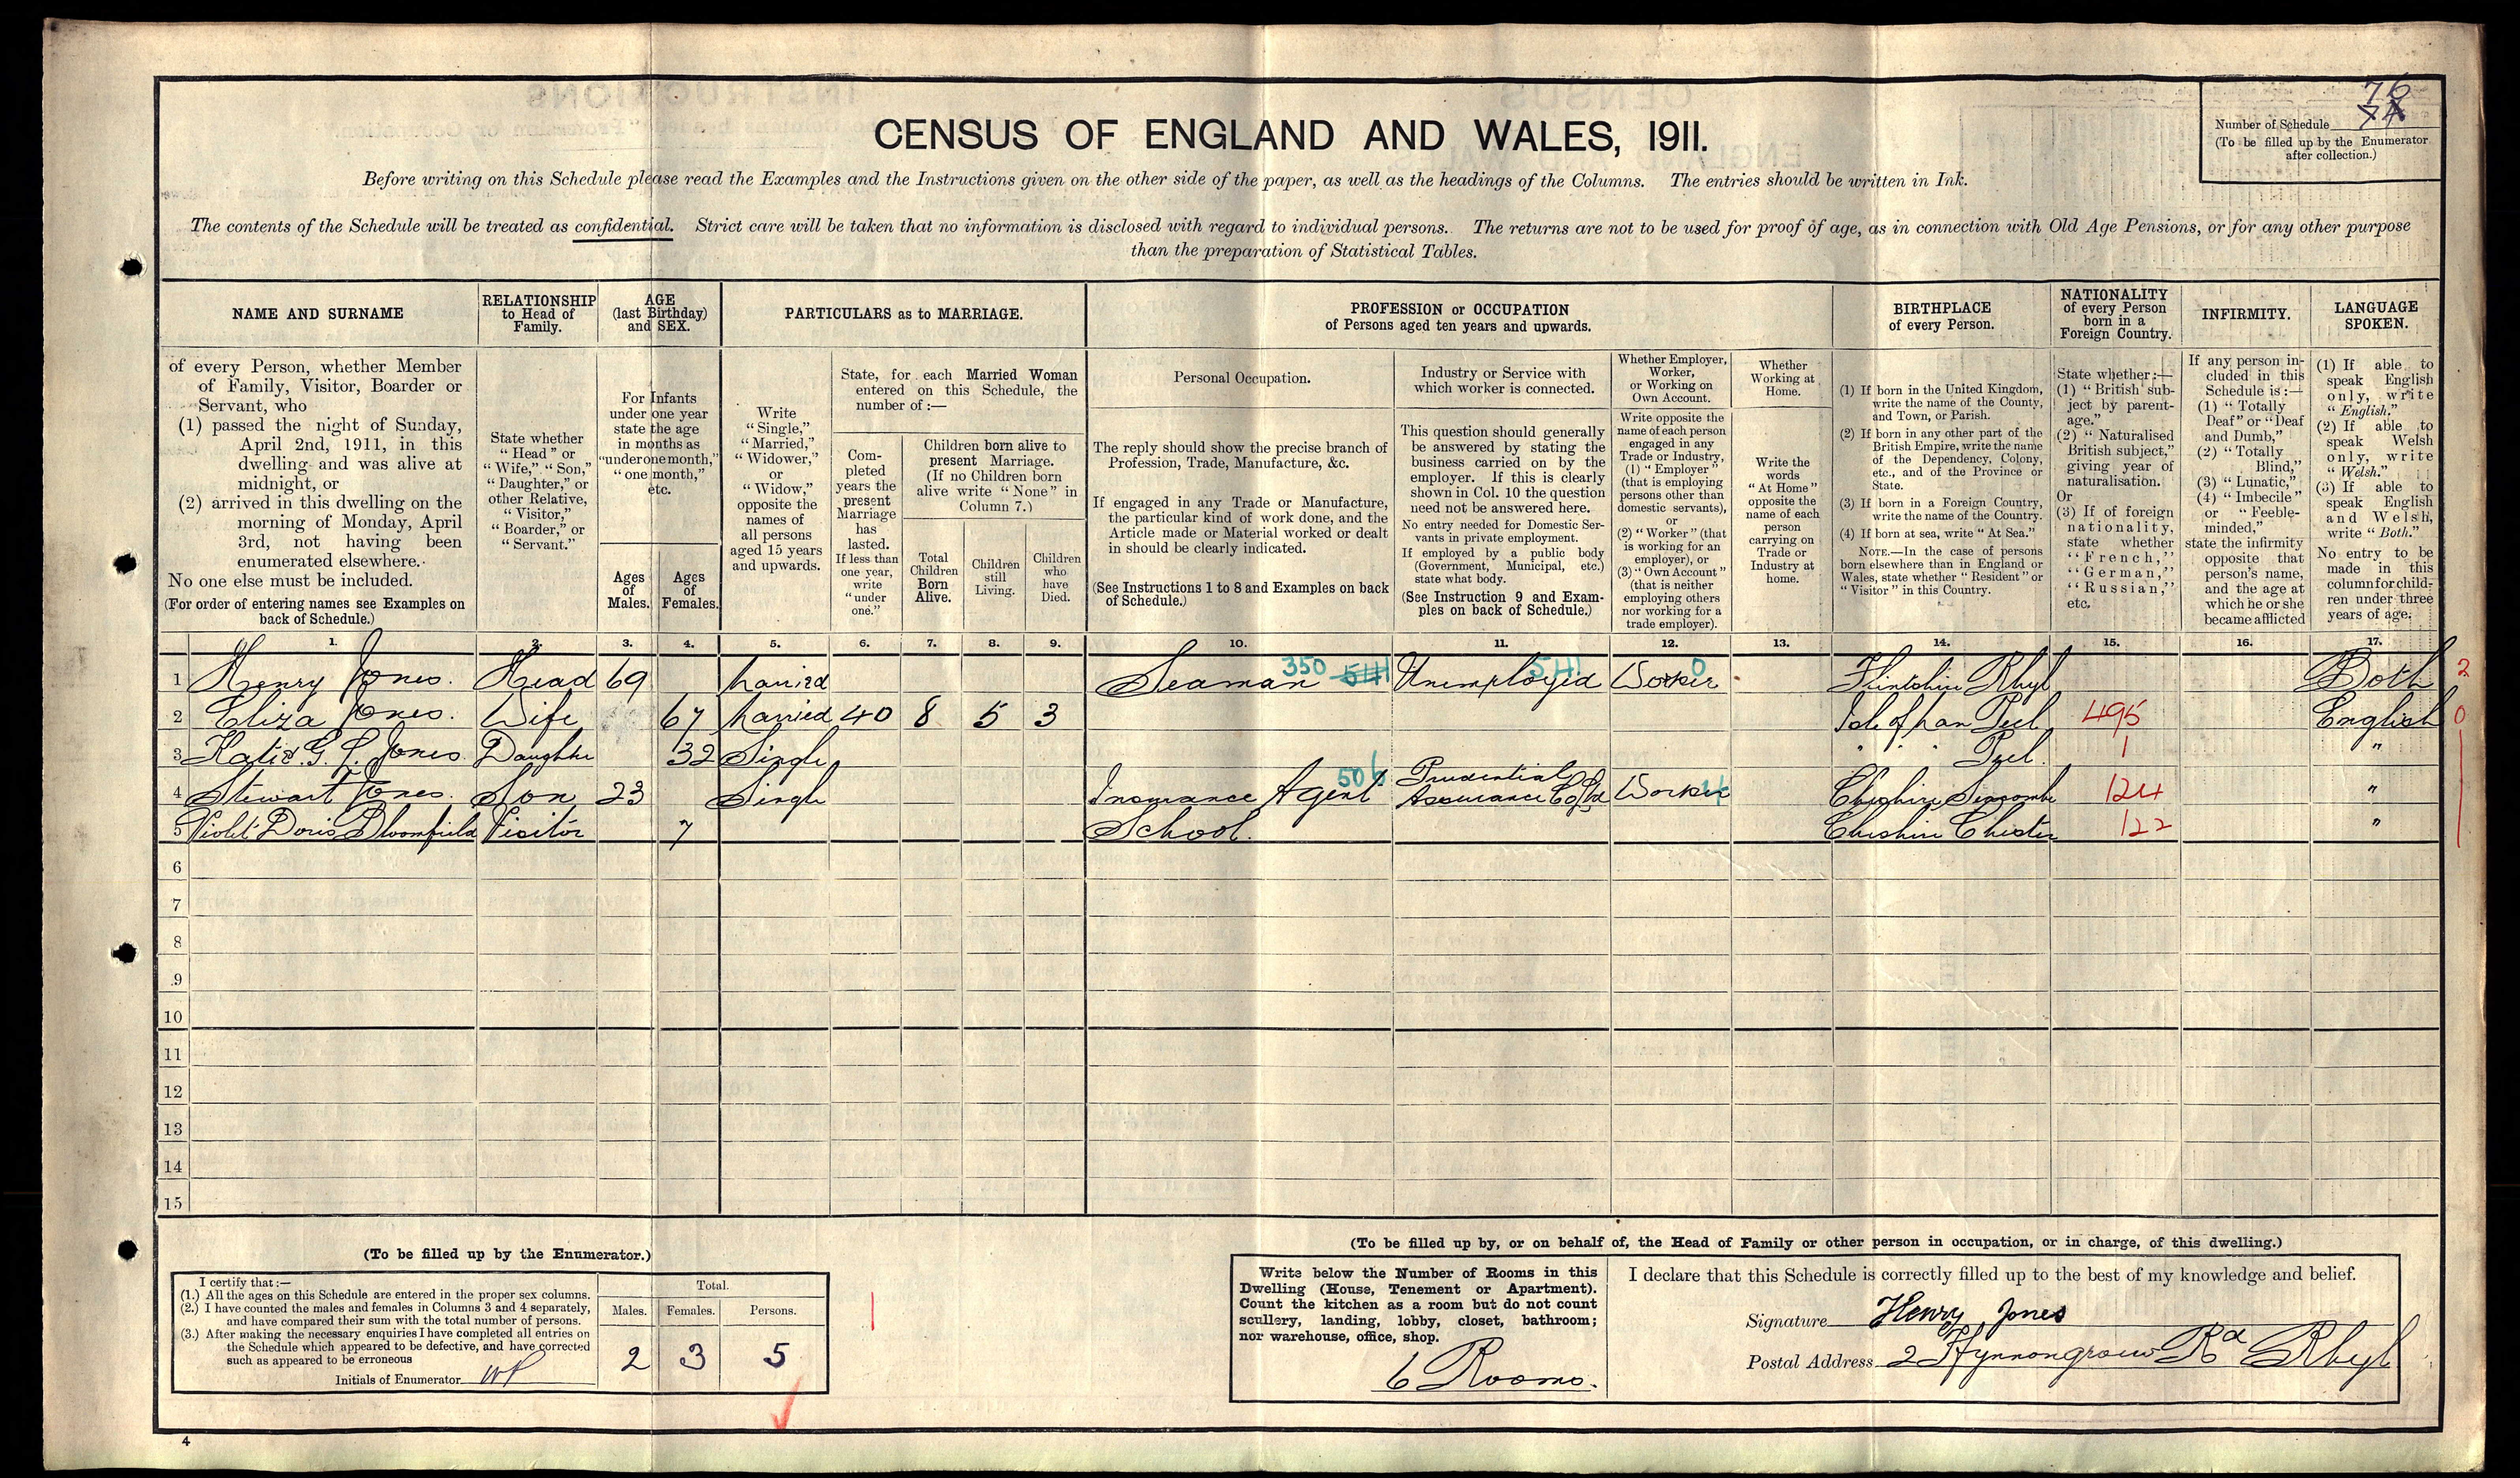 76
74
Number of Schedule
(To be filled up by the Enumerator
after collection.)
CENSUS OF ENGLAND AND WALES, 1911.
Before writing on this Schedule please read the Examples and the Instructions given on the other side of the paper, as well as the headings of the Columns. The entries should be written in Ink.
The contents of the Schedule will be treated as confidential. Strict care will be taken that no information is disclosed with regard to individual persons. The returns are not to be used for proof of age, as in connection with Old Age Pensions, or for any other purpose
than the preparation of Statistical Tables.
NAME AND SURNAME
of every Person, whether Member
of Family, Visitor, Boarder or
Servant, who
(1) passed the night of Sunday,
April 2nd, 1911, in this
dwelling and was alive at
midnight, or
(2) arrived in this dwelling on the
morning of Monday, April
3rd, not having been
enumerated elsewhere.
No one else must be included.
(For order of entering names see Examples on
back of Schedule.)
RELATIONSHIP
to Head of
Family.
State whether
"Head" or
"Wife," "Son,"
"Daughter," or
other Relative,
"Visitor,"
"Boarder," or
"Servant."
AGE
(last Birthday)
and SEX.
For Infants
under one year
state the age
in months as
"under one month,"
"one month,"
etc.
Ages
of
Males.
Ages
of
Females.
PARTICULARS as to MARRIAGE.
Write
"Single,"
"Married,"
"Widower,"
or
"Widow,"
opposite the
names of
all persons
aged 15 years
and upwards.
State, for each Married Woman
entered on this Schedule, the
number of :—
Com-
pleted
years the
present
Marriage
has
lasted.
If less than
one year,
write
"under
one."
Children born alive to
present Marriage.
(If no Children born
alive write "None" in
Column 7.)
Total
Children
Born
Alive.
Children
still
Living.
Children
who
have
Died.
PROFESSION or OCCUPATION
of Persons aged ten years and upwards.
Personal Occupation.
The reply should show the precise branch of
Profession, Trade, Manufacture, &c.
If engaged in any Trade or Manufacture,
the particular kind of work done, and the
Article made or Material worked or dealt
in should be clearly indicated.
(See Instructions 1 to 8 and Examples on back
of Schedule.)
Industry or Service with
which worker is connected.
This question should generally
be answered by stating the
business carried on by the
employer. If this is clearly
shown in Col. 10 the question
need not be answered here.
No entry needed for Domestic Ser-
vants in private employment.
If employed by a public body
(Government, Municipal, etc.)
state what body.
(See Instruction 9 and Exam-
ples on back of Schedule.)
Whether Employer,
Worker,
or Working on
Own Account.
Write opposite the
name of each person
engaged in any
Trade or Industry,
(1) "Employer"
(that is employing
persons other than
domestic servants),
or
(2) "Worker" (that
is working for an
employer), or
(3) "Own Account"
(that is neither
employing others
nor working for a
trade employer).
Whether
Working at
Home.
Write the
words
"At Home"
opposite the
name of each
person
carrying on
Trade or
Industry at
home.
BIRTHPLACE
of every Person.
(1) If born in the United Kingdom,
write the name of the County,
and Town, or Parish.
(2) If born in any other part of the
British Empire, write the name
of the Dependency, Colony,
etc., and of the Province or
State.
(3) If born in a Foreign Country,
write the name of the Country.
(4) If born at sea, write "At Sea."
NOTE.—In the case of persons
born elsewhere than in England or
Wales, state whether "Resident" or
"Visitor" in this Country.
NATIONALITY
of every Person
born in a
Foreign Country.
State whether :—
(1) "British sub-
ject by parent-
age."
(2) "Naturalised
British subject,"
giving year of
naturalisation.
Or
(3) If of foreign
nationality,
state whether
"French,"
"German,"
"Russian,"
etc.
INFIRMITY.
If any person in-
cluded in this
Schedule is :—
(1) "Totally
Deaf" or "Deaf
and Dumb,"
(2) "Totally
Blind,"
(3) "Lunatic,"
(4) "Imbecile"
or "Feeble-
minded,"
state the infirmity
opposite that
person's name,
and the age at
which he or she
became afflicted
LANGUAGE
SPOKEN.
(1) If able to
speak English
only, write
"English."
(2) If able to
speak Welsh
only, write
"Welsh."
(3) If able to
speak English
and Welsh,
write "Both."
No entry to be
made in this
column for child-
ren under three
years of age.
1. 2. 3. 4. 5. 6. 7. 8. 9. 10. 11. 12. 13. 14. 15. 16. 17.
1 Henry Jones. Head 69 Married Seaman 350 541 Unemployed 541 Worker 0 Flintshire Rhyl Both 2
2 Eliza Jones. Wife 67 Married 40 8 5 3 Isle of Man Peel 495 English 0
3 Katie. G. Jones Daughter 32 Single " " " Peel. 1 "
4 Stewart Jones. Son 23 Single Insurance Agent 506 Prudential Assurance Co Ltd Worker Cheshire Seacombe 124 "
5 Violet Doris Bloomfield Visitor 7 School. Cheshire Chester 122 "
6
7
8
9
10
11
12
13
14
15
(To be filled up by the Enumerator.)
I certify that :—
(1.) All the ages on this Schedule are entered in the proper sex columns.
(2.) I have counted the males and females in Columns 3 and 4 separately,
and have compared their sum with the total number of persons.
(3.) After making the necessary enquiries I have completed all entries on
the Schedule which appeared to be defective, and have corrected
such as appeared to be erroneous
Initials of Enumerator
Total.
Males. Females. Persons.
2 3 5
(To be filled up by, or on behalf of, the Head of Family or other person in occupation, or in charge, of this dwelling.)
Write below the Number of Rooms in this
Dwelling (House, Tenement or Apartment).
Count the kitchen as a room but do not count
scullery, landing, lobby, closet, bathroom;
nor warehouse, office, shop.
6 Rooms.
I declare that this Schedule is correctly filled up to the best of my knowledge and belief.
Signature Henry Jones
Postal Address 2 Ffynnongroew Rd Rhyl
4